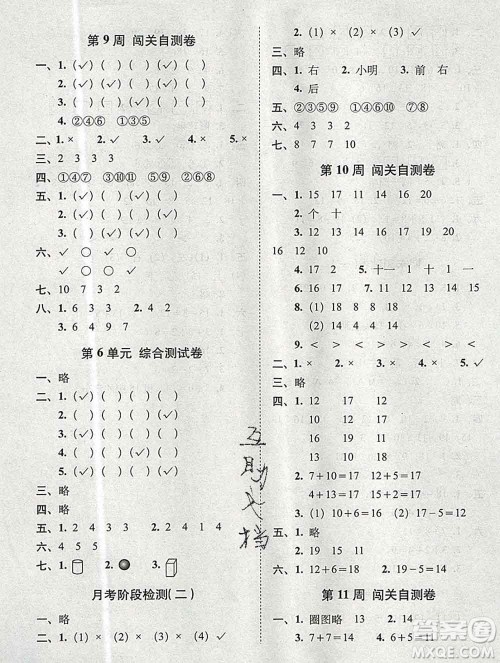 第9周 闯关自测卷
一、1.(✓)( )( )( )( )
2.( )( )( )( )(✓)
3.( )( )( )(✓)( )
4.②④⑥ ①③⑤
二、1.× 2.✓ 3.× 4.× 5.×
三、2 3 1 3
四、①④⑦ ③⑤ ②⑥⑧
五、( )( )( )(✓)( )
( )( )(✓)( )
(✓)( )( )( )
六、
七、10 7 3 2
八、1. 6 3 7 2. 2 4 1
3. 6 4 9 7
第6单元 综合测试卷
一、略
二、1.(✓)( )( )( )
2.( )( )(✓)( )
3.( )( )( )(✓)
4.( )( )(✓)( )
5.(✓)( )( )( )
三、略
四、略
五、1. 2 4 3 3 2. 2 4 4 3
六、4 5 5
七、1. 2. 3.
月考阶段检测(二)
一、略
二、1.(1)× (2)× (3)× (4)✓
2.(1)× (2)× (3)✓
三、略
四、1.右 2.小明 3.前 右
4.后
五、②③⑤⑨ ①④⑥⑦⑧
六、①③④⑥⑦ ②⑤⑧
七、8 7 7 10
第10周 闯关自测卷
一、1. 15 17 11 14 16 20
2.个 十
3. 11 12 13 18 19 20 17
16 12 10
4. 17 2 5.十一 1 十 1 一 1
6. 17 18
7. 20 15
8.(1)18 8 18 (2)14 12 14
9.< < > < > <
二、1.× 2.× 3.✓ 4.× 5.✓
三、略
四、1. 12 17 12
10 12 17
16 13 18
2. 7+10=17 12+5=17
10+4=14 13+5=18
3.(1)10+6=16 (2)12+5=17
五、1.略 2.略
3. 19 15 11 4.略
六、1. 12+6=18 2. 7+7=14
第11周 闯关自测卷
一、1.圈图略 13 2. 14
3. 7+7=14 8+8=16
互助文档
答案圈
MXQE.COM